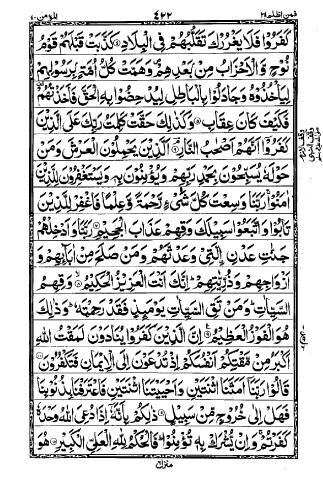 فمن اظلم ٢٤ ٤٢٢ المؤمن ٤٠
كَفَرُوْا فَلَا يَغْرُرْكَ تَقَلُّبُهُمْ فِي الْبِلَادِ ۝ كَذَّبَتْ قَبْلَهُمْ قَوْمُ
نُوْحٍ وَّالْاَحْزَابُ مِنْۢ بَعْدِهِمْ وَهَمَّتْ كُلُّ اُمَّةٍۭ بِرَسُوْلِهِمْ
لِيَاْخُذُوْهُ وَجَادَلُوْا بِالْبَاطِلِ لِيُدْحِضُوْا بِهِ الْحَقَّ فَاَخَذْتُهُمْ
فَكَيْفَ كَانَ عِقَابِ ۝ وَكَذٰلِكَ حَقَّتْ كَلِمَتُ رَبِّكَ عَلَى الَّذِيْنَ
كَفَرُوْٓا اَنَّهُمْ اَصْحٰبُ النَّارِ ۝ اَلَّذِيْنَ يَحْمِلُوْنَ الْعَرْشَ وَمَنْ
حَوْلَهٗ يُسَبِّحُوْنَ بِحَمْدِ رَبِّهِمْ وَيُؤْمِنُوْنَ بِهٖ وَيَسْتَغْفِرُوْنَ لِلَّذِيْنَ
اٰمَنُوْا ۚ رَبَّنَا وَسِعْتَ كُلَّ شَيْءٍ رَّحْمَةً وَّعِلْمًا فَاغْفِرْ لِلَّذِيْنَ
تَابُوْا وَاتَّبَعُوْا سَبِيْلَكَ وَقِهِمْ عَذَابَ الْجَحِيْمِ ۝ رَبَّنَا وَاَدْخِلْهُمْ
جَنّٰتِ عَدْنِ ِۨالَّتِيْ وَعَدْتَّهُمْ وَمَنْ صَلَحَ مِنْ اٰبَآئِهِمْ وَ
اَزْوَاجِهِمْ وَذُرِّيّٰتِهِمْ ؕ اِنَّكَ اَنْتَ الْعَزِيْزُ الْحَكِيْمُ ۝ وَقِهِمُ
السَّيِّاٰتِ ؕ وَمَنْ تَقِ السَّيِّاٰتِ يَوْمَئِذٍ فَقَدْ رَحِمْتَهٗ ؕ وَذٰلِكَ
هُوَ الْفَوْزُ الْعَظِيْمُ ۝ اِنَّ الَّذِيْنَ كَفَرُوْا يُنَادَوْنَ لَمَقْتُ اللّٰهِ
اَكْبَرُ مِنْ مَّقْتِكُمْ اَنْفُسَكُمْ اِذْ تُدْعَوْنَ اِلَى الْاِيْمَانِ فَتَكْفُرُوْنَ ۝
قَالُوْا رَبَّنَآ اَمَتَّنَا اثْنَتَيْنِ وَاَحْيَيْتَنَا اثْنَتَيْنِ فَاعْتَرَفْنَا بِذُنُوْبِنَا
فَهَلْ اِلٰى خُرُوْجٍ مِّنْ سَبِيْلٍ ۝ ذٰلِكُمْ بِاَنَّهٗٓ اِذَا دُعِيَ اللّٰهُ وَحْدَهٗ
كَفَرْتُمْ ۚ وَاِنْ يُّشْرَكْ بِهٖ تُؤْمِنُوْا ؕ فَالْحُكْمُ لِلّٰهِ الْعَلِيِّ الْكَبِيْرِ ۝ هُوَ